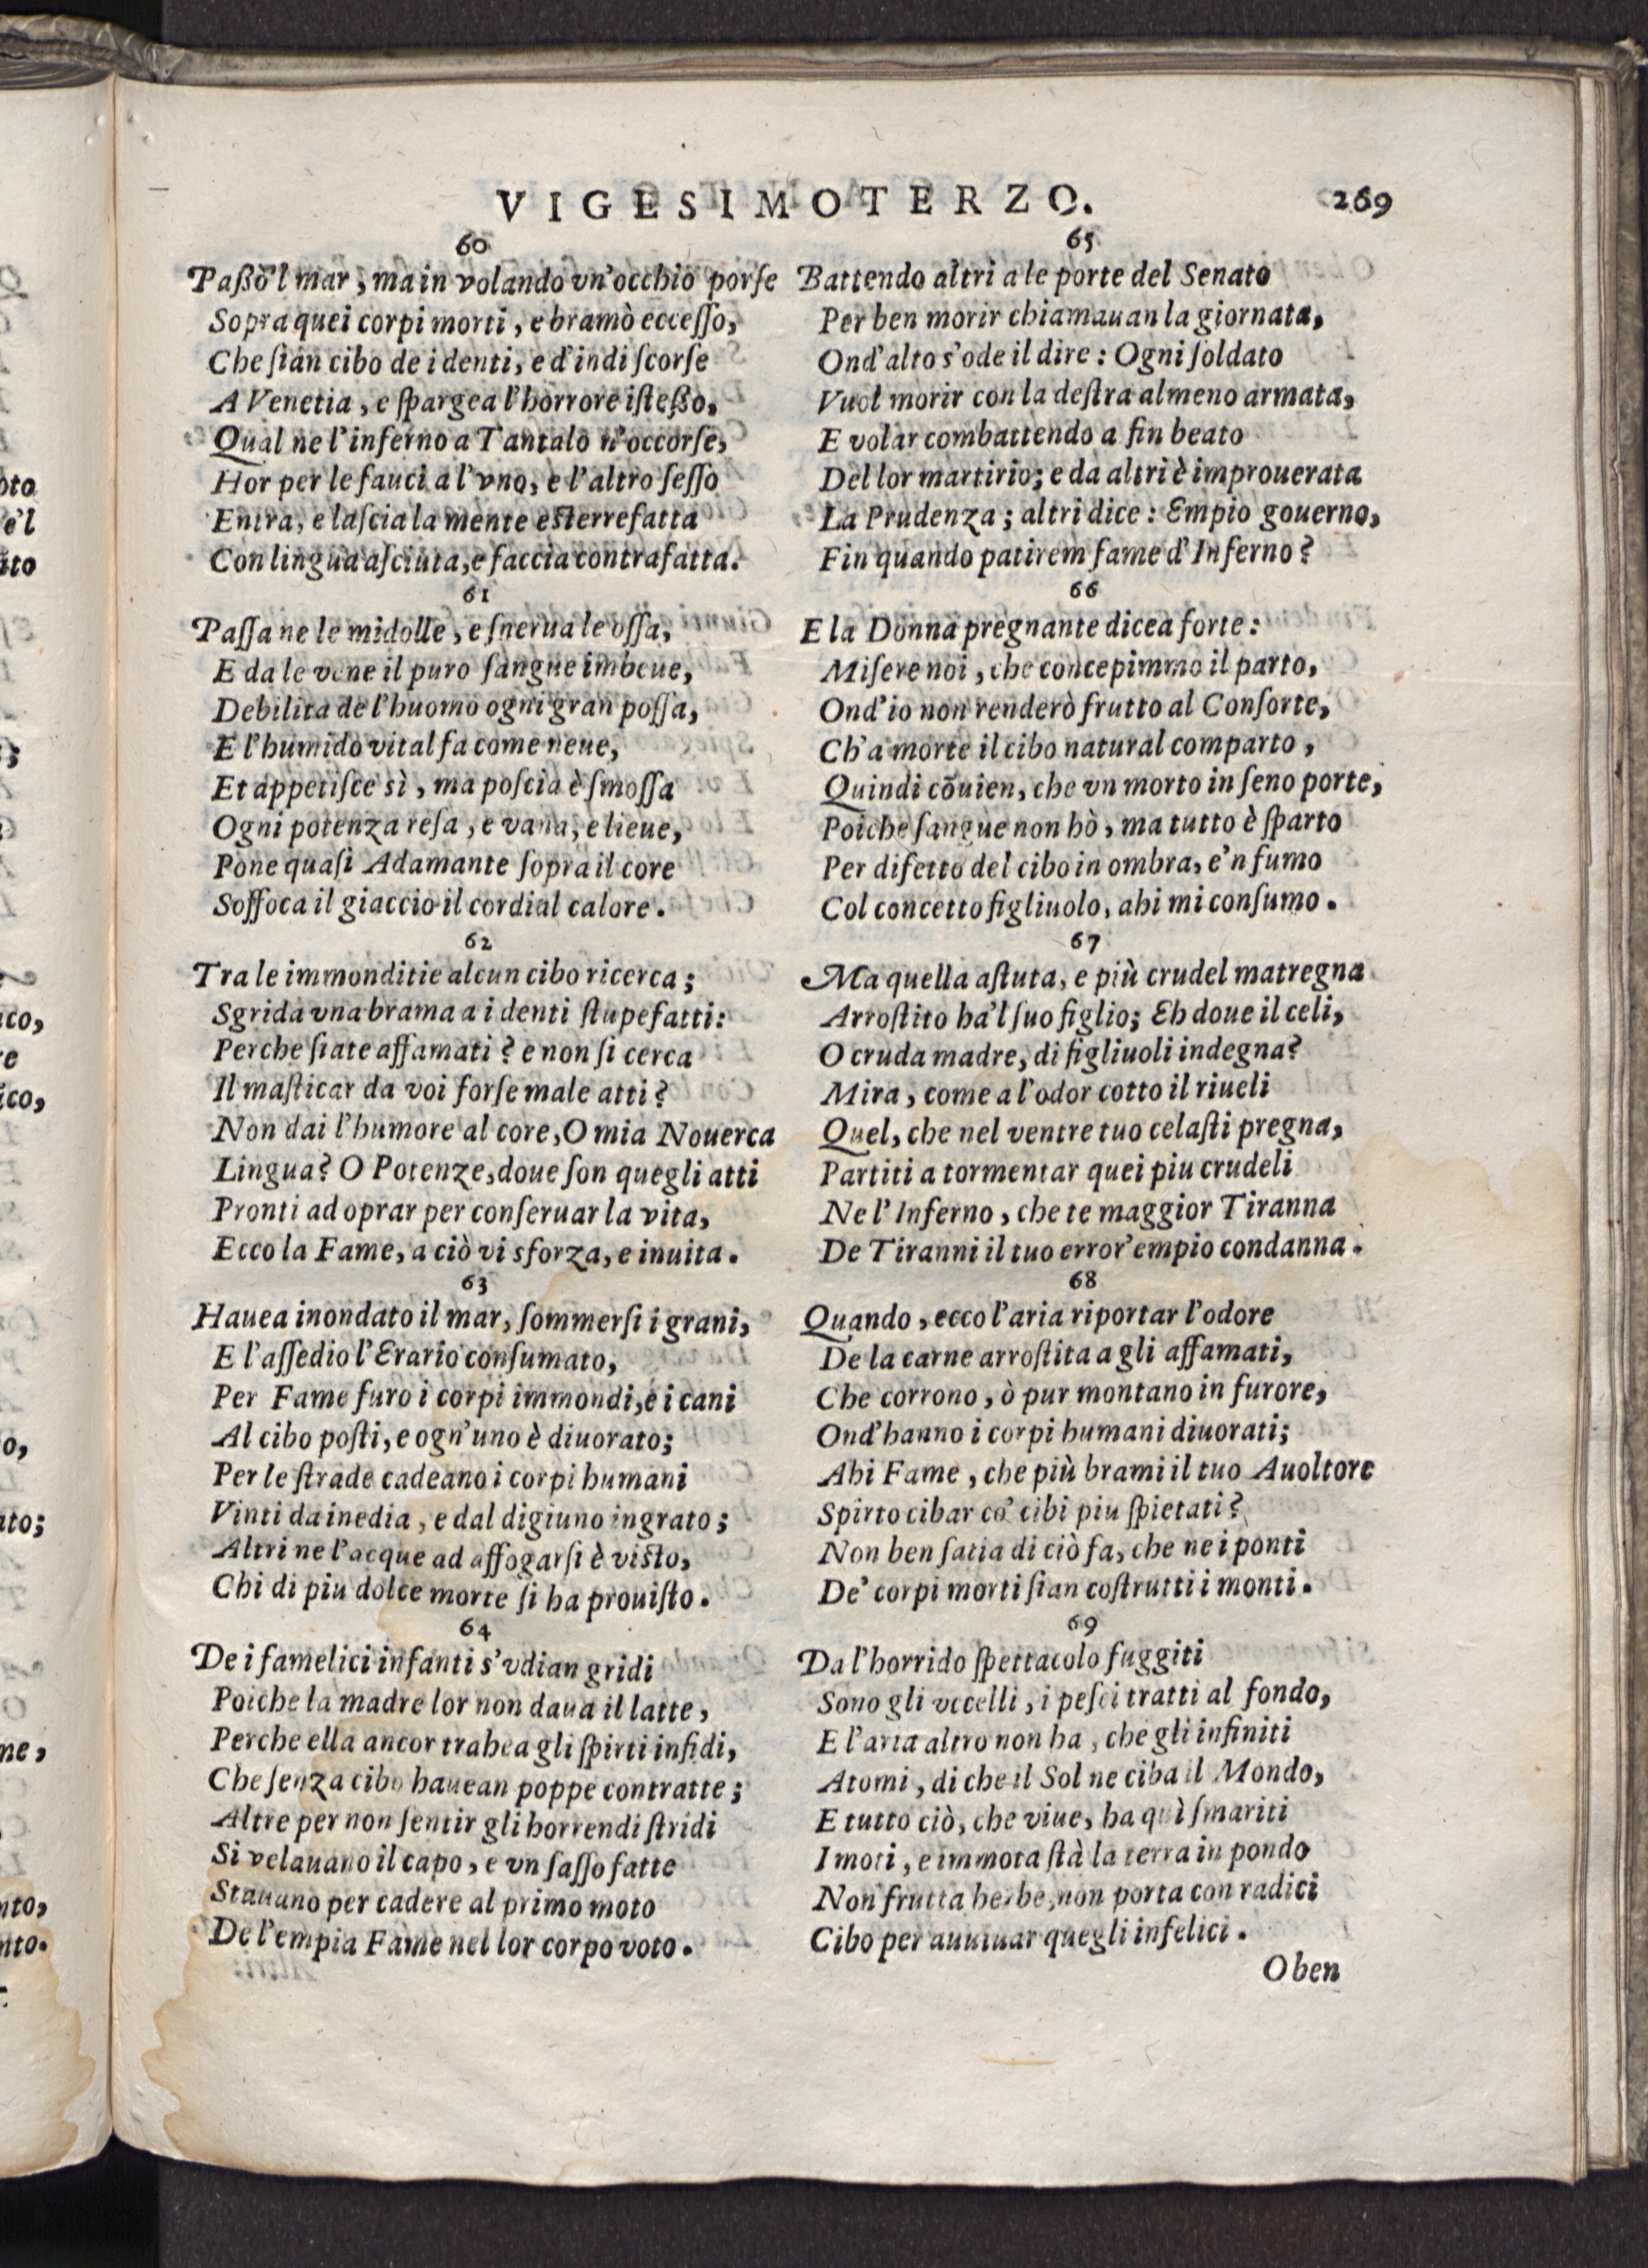 VIGESIMOTERZO. 269
60
Paßò'l mar, ma in volando vn'occhio porſe
Sopra quei corpi morti, e bramò ecceſſo,
Che ſian cibo de i denti, e d'indi ſcorſe
A Venetia, e ſpargea l'horrore iſteßo,
Qual ne l'inferno a Tantalo n'occorſe,
Hor per le fauci a l'vno, e l'altro ſeſſo
Entra, e laſcia la mente eſterrefatta
Con lingua aſciuta, e faccia contrafatta.
61
Paſſa ne le midolle, e ſnerua le oſſa,
E da le vene il puro ſangue imbeue,
Debilita de l'huomo ogni gran poſſa,
E l'humido vital fa come neue,
Et appetiſce sì, ma poſcia è ſmoſſa
Ogni potenza reſa, e vana, e lieue,
Pone quaſi Adamante ſopra il core
Soffoca il giaccio il cordial calore.
62
Tra le immonditie alcun cibo ricerca;
Sgrida vna brama a i denti ſtupefatti:
Perche ſiate affamati? e non ſi cerca
Il maſticar da voi forſe male atti?
Non dai l'humore al core, O mia Nouerca
Lingua? O Potenze, doue ſon quegli atti
Pronti ad oprar per conſeruar la vita,
Ecco la Fame, a ciò vi sforza, e inuita.
63
Hauea inondato il mar, ſommerſi i grani,
E l'aſſedio l'Erario conſumato,
Per Fame furo i corpi immondi, e i cani
Al cibo poſti, e ogn'uno è diuorato;
Per le ſtrade cadeano i corpi humani
Vinti da inedia, e dal digiuno ingrato;
Altri ne l'acque ad affogarſi è viſto,
Chi di piu dolce morte ſi ha prouiſto.
64
De i famelici infanti s'vdian gridi
Poiche la madre lor non daua il latte,
Perche ella ancor trahea gli ſpirti infidi,
Che ſenza cibo hauean poppe contratte;
Altre per non ſentir gli horrendi ſtridi
Si velauano il capo, e vn ſaſſo fatte
Stauano per cadere al primo moto
De l'empia Fame nel lor corpo voto.
65
Battendo altri a le porte del Senato
Per ben morir chiamauan la giornata,
Ond'alto s'ode il dire: Ogni ſoldato
Vuol morir con la deſtra almeno armata,
E volar combattendo a fin beato
Del lor martirio; e da altri è improuerata
La Prudenza; altri dice: Empio gouerno,
Fin quando patirem fame d'Inferno?
66
E la Donna pregnante dicea forte:
Miſere noi, che concepimmo il parto,
Ond'io non renderò frutto al Conſorte,
Ch'a morte il cibo natural comparto,
Quindi cōuien, che vn morto in ſeno porte,
Poiche ſangue non hò, ma tutto è ſparto
Per difetto del cibo in ombra, e'n fumo
Col concetto figliuolo, ahi mi conſumo.
67
Ma quella aſtuta, e più crudel matregna
Arroſtito ha'l ſuo figlio; Eh doue il celi,
O cruda madre, di figliuoli indegna?
Mira, come a l'odor cotto il riueli
Quel, che nel ventre tuo celaſti pregna,
Partiti a tormentar quei piu crudeli
Ne l'Inferno, che te maggior Tiranna
De Tiranni il tuo error'empio condanna.
68
Quando, ecco l'aria riportar l'odore
De la carne arroſtita a gli affamati,
Che corrono, ò pur montano in furore,
Ond'hanno i corpi humani diuorati;
Ahi Fame, che più brami il tuo Auoltore
Spirto cibar co' cibi piu ſpietati?
Non ben ſatia di ciò fa, che ne i ponti
De' corpi morti ſian coſtrutti i monti.
69
Da l'horrido ſpettacolo fuggiti
Sono gli vccelli, i peſci tratti al fondo,
E l'aria altro non ha, che gli infiniti
Atomi, di che il Sol ne ciba il Mondo,
E tutto ciò, che viue, ha quì ſmariti
I moti, e immota ſtà la terra in pondo
Non frutta herbe, non porta con radici
Cibo per auuiuar quegli infelici.
O ben